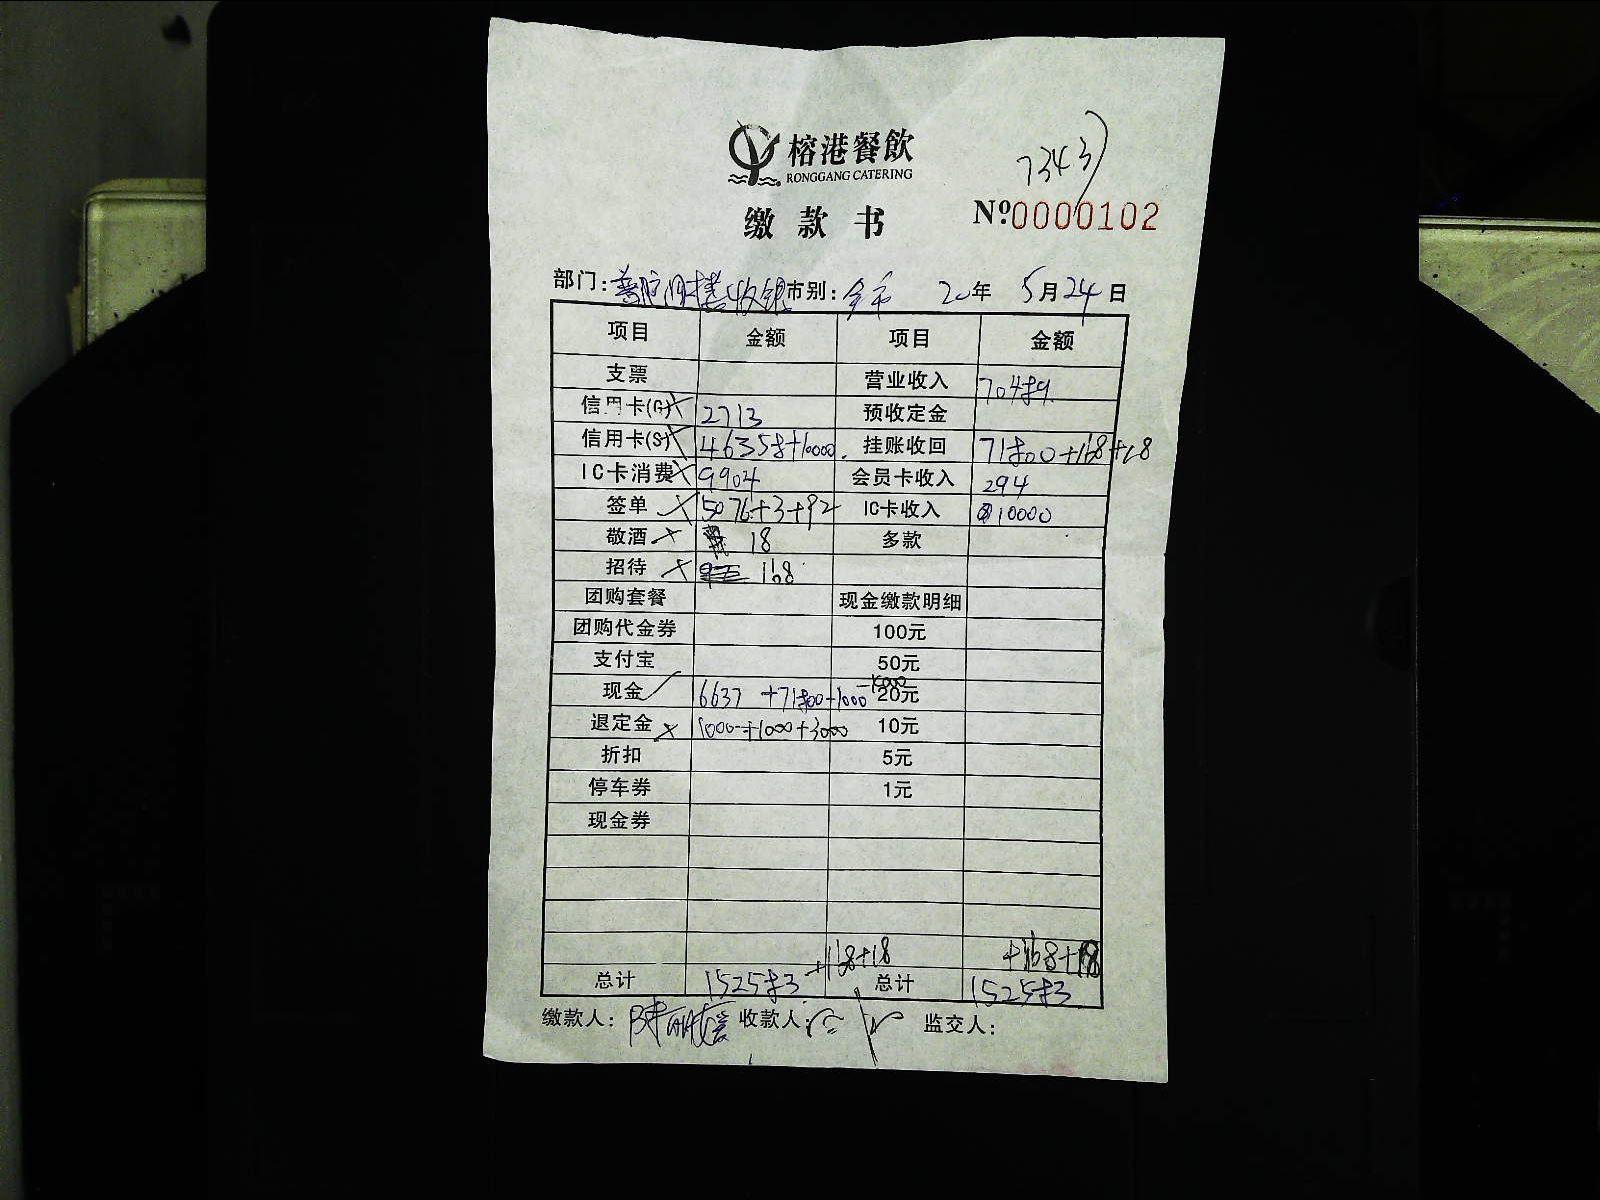 榕港餐飲
RONGGANG CATERING
7343
缴款书
No 0000102
部门: 收银 市别: 全市 20年 5月24日
项目 金额 项目 金额
支票 营业收入
信用卡(G) × 2713 预收定金
信用卡(S) × +10000 挂账收回 +168+18
IC卡消费 × 9904 会员卡收入 294
签单 × 5076+3+92 IC卡收入 10000
敬酒 × 18 多款
招待 × 168
团购套餐 现金缴款明细
团购代金券 100元
支付宝 50元
-1000
现金 6637 +1000 20元
退定金 × 1000+1000+3000 10元
折扣 5元
停车券 1元
现金券
+168+18 +168+18
总计 总计
缴款人: 收款人: 监交人: